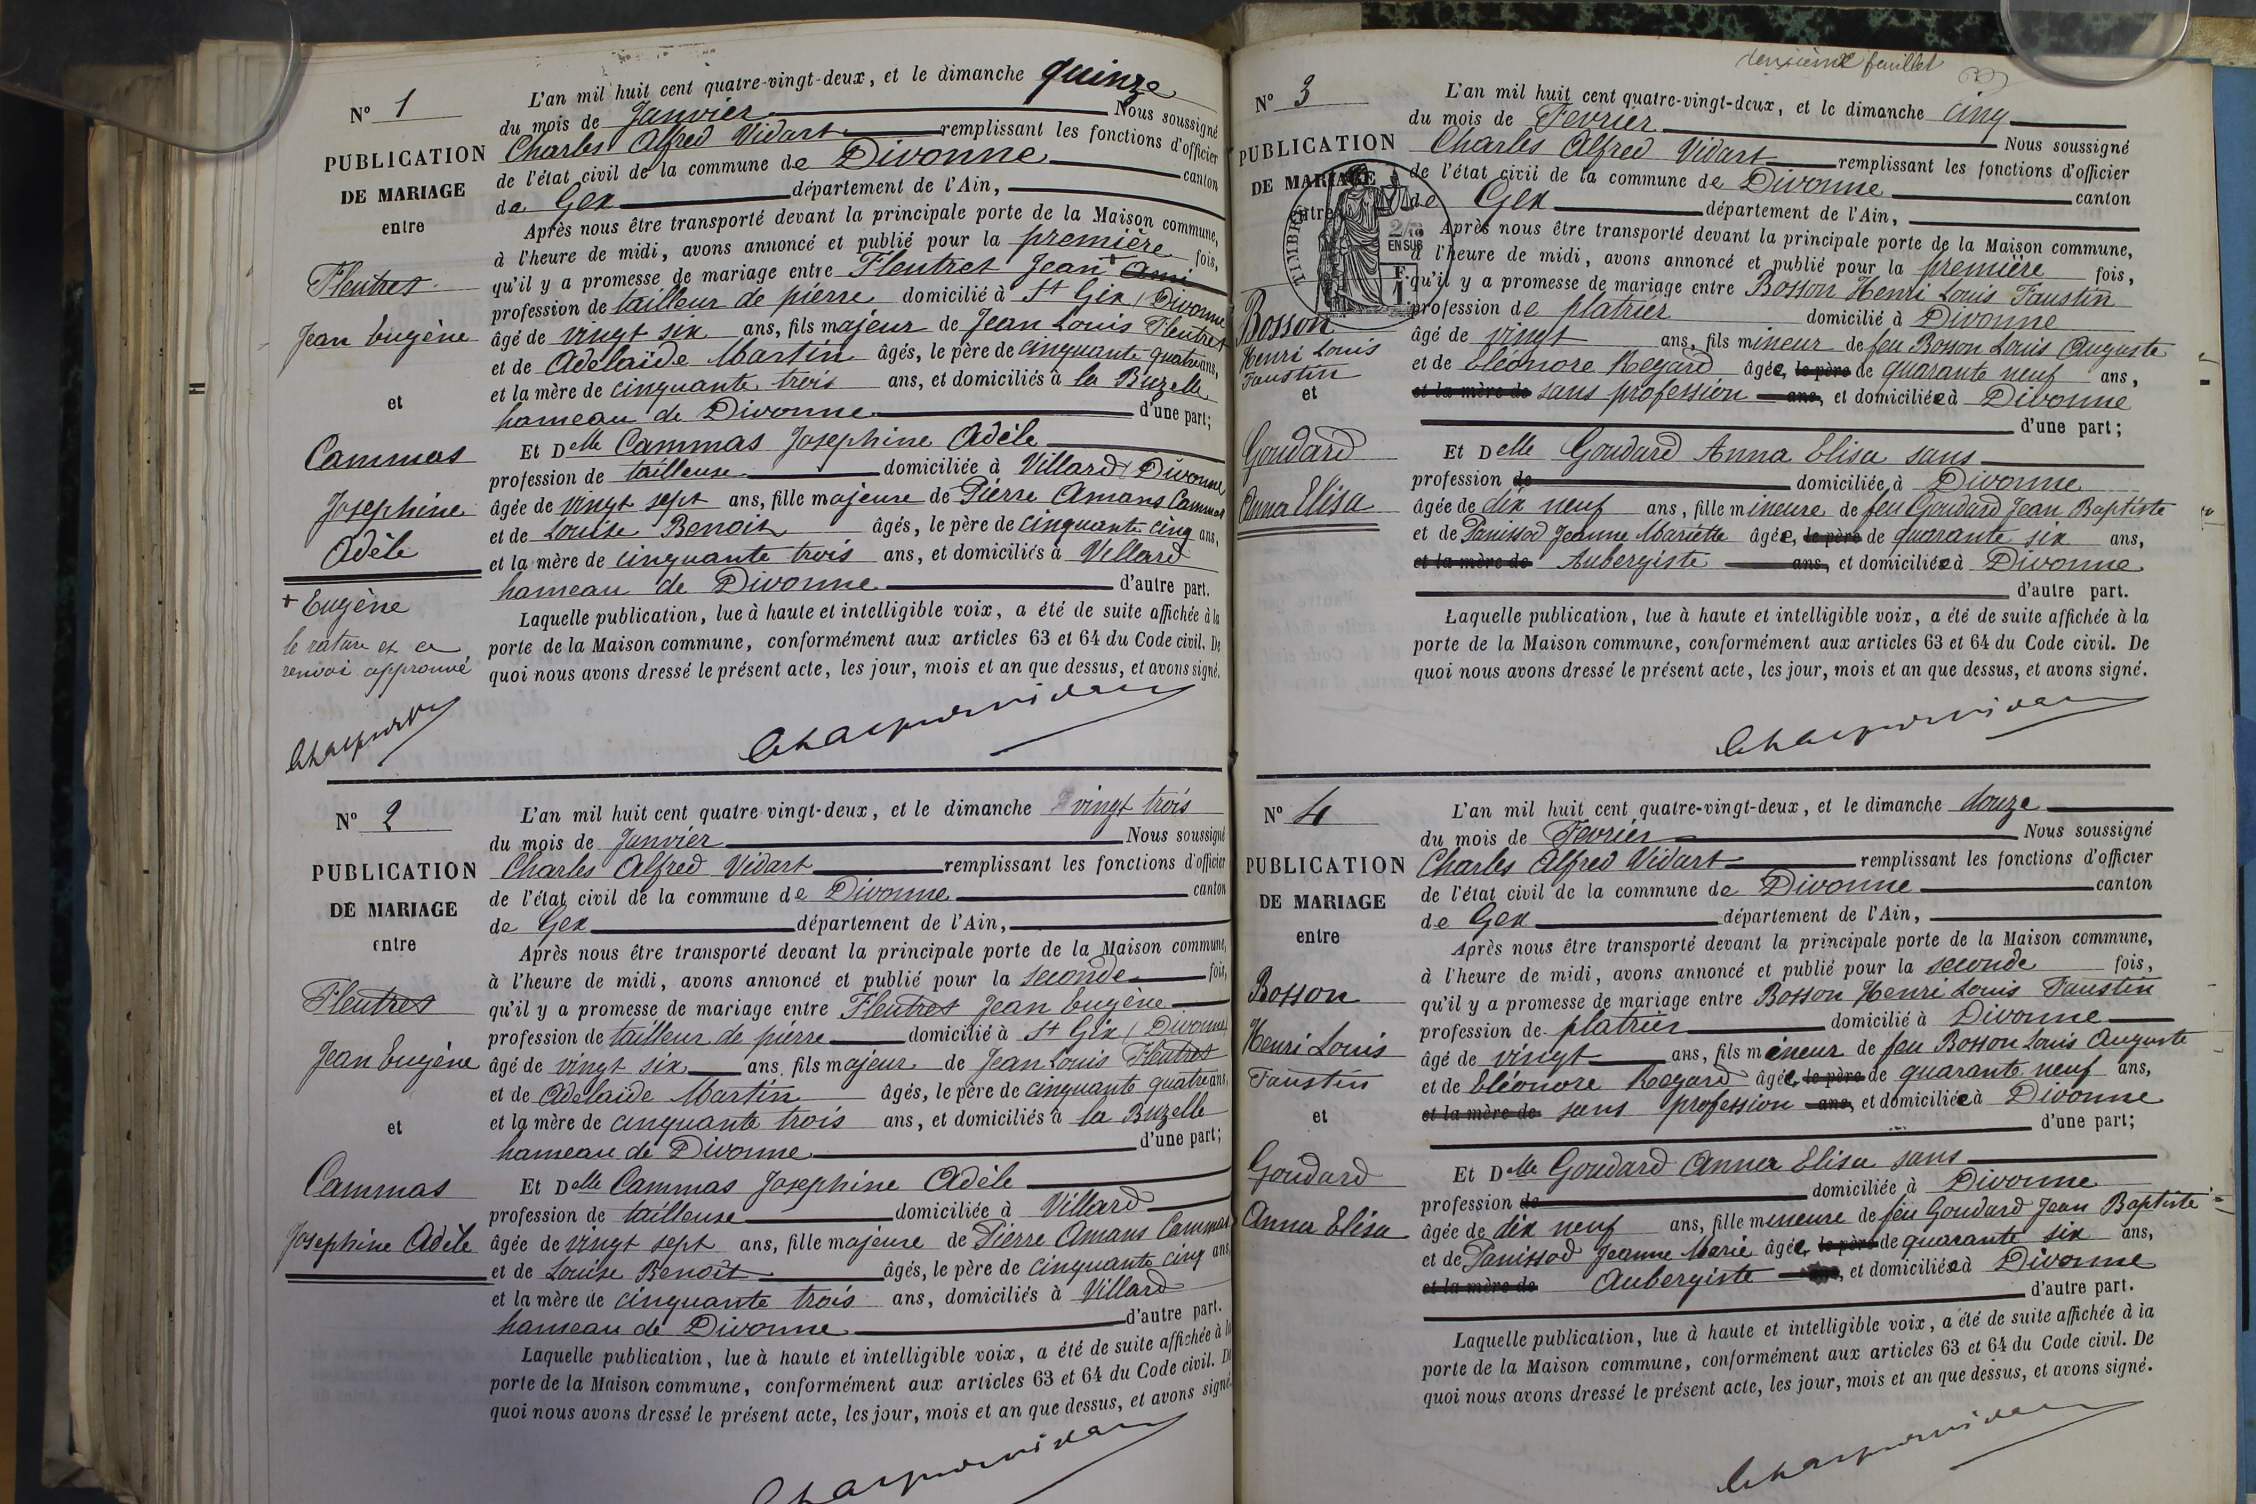 N° 1
PUBLICATION
DE MARIAGE
entre
Fleutret
Jean Eugène
et
Cammas
Josephine
Adèle
+ Eugène
le rature et ce
renvoi approuvé
L'an mil huit cent quatre-vingt-deux, et le dimanche quinze
du mois de Janvier Nous soussigné
Charles Alfred Vidart remplissant les fonctions d'officier
de l'état civil de la commune de Divonne canton
de Gex département de l'Ain,
Après nous être transporté devant la principale porte de la Maison commune,
à l'heure de midi, avons annoncé et publié pour la première fois,
qu'il y a promesse de mariage entre Fleutret Jean + Ami
profession de tailleur de pierre domicilié à St Gix (Divonne
âgé de vingt six ans, fils majeur de Jean Louis Fleutret
et de Adelaïde Martin âgés, le père de cinquante quatre ans,
et la mère de cinquante trois ans, et domiciliés à la Buzelle
hameau de Divonne d'une part;
Et Delle Cammas Josephine Adèle
profession de tailleuse domiciliée à Villard (Divonne
âgée de vingt sept ans, fille majeure de Pierre Amans Cammas
et de Louise Benoit âgés, le père de cinquante cinq ans,
et la mère de cinquante trois ans, et domiciliés à Villard
hameau de Divonne d'autre part.
Laquelle publication, lue à haute et intelligible voix, a été de suite affichée à la
porte de la Maison commune, conformément aux articles 63 et 64 du Code civil. De
quoi nous avons dressé le présent acte, les jour, mois et an que dessus, et avons signé.
N° 2
PUBLICATION
DE MARIAGE
entre
Fleutret
Jean Eugène
et
Cammas
Josephine Adèle
L'an mil huit cent quatre-vingt-deux, et le dimanche vingt trois
du mois de Janvier Nous soussigné
Charles Alfred Vidart remplissant les fonctions d'officier
de l'état civil de la commune de Divonne canton
de Gex département de l'Ain,
Après nous être transporté devant la principale porte de la Maison commune,
à l'heure de midi, avons annoncé et publié pour la seconde fois,
qu'il y a promesse de mariage entre Fleutret Jean Eugène
profession de tailleur de pierre domicilié à St Gix (Divonne
âgé de vingt six ans, fils majeur de Jean Louis Fleutret
et de Adelaide Martin âgés, le père de cinquante quatre ans,
et la mère de cinquante trois ans, et domiciliés à la Buzelle
hameau de Divonne d'une part;
Et Delle Cammas Josephine Adèle
profession de tailleuse domiciliée à Villard
âgée de vingt sept ans, fille majeure de Pierre Amans Cammas
et de Louise Benoit âgés, le père de cinquante cinq ans,
et la mère de cinquante trois ans, domiciliés à Villard
hameau de Divonne d'autre part.
Laquelle publication, lue à haute et intelligible voix, a été de suite affichée à la
porte de la Maison commune, conformément aux articles 63 et 64 du Code civil. De
quoi nous avons dressé le présent acte, les jour, mois et an que dessus, et avons signé.
deuxième feuillet
N° 3
PUBLICATION
DE MARIAGE
entre
TIMBRE
2/10
EN SUS
Bosson
Henri Louis
Faustin
et
Goudard
Anna Elisa
L'an mil huit cent quatre-vingt-deux, et le dimanche cinq
du mois de Fevrier Nous soussigné
Charles Alfred Vidart remplissant les fonctions d'officier
de l'état civil de la commune de Divonne canton
de Gex département de l'Ain,
Après nous être transporté devant la principale porte de la Maison commune,
à l'heure de midi, avons annoncé et publié pour la première fois,
qu'il y a promesse de mariage entre Bosson Henri Louis Faustin
profession de platrier domicilié à Divonne
âgé de vingt ans, fils mineur de feu Bosson Louis Auguste
et de Eléonore Regard âgée, le père de quarante neuf ans,
et la mère de sans profession ans, et domiciliée à Divonne
d'une part;
Et Delle Goudard Anna Elisa sans
profession de domiciliée à Divonne
âgée de dix neuf ans, fille mineure de feu Goudard Jean Baptiste
et de Panissod Jeanne Mariette âgée, le père de quarante six ans,
et la mère de Aubergiste ans, et domiciliée à Divonne
d'autre part.
Laquelle publication, lue à haute et intelligible voix, a été de suite affichée à la
porte de la Maison commune, conformément aux articles 63 et 64 du Code civil. De
quoi nous avons dressé le présent acte, les jour, mois et an que dessus, et avons signé.
N° 4
PUBLICATION
DE MARIAGE
entre
Bosson
Henri Louis
Faustin
et
Goudard
Anna Elisa
L'an mil huit cent quatre-vingt-deux, et le dimanche douze
du mois de Fevrier Nous soussigné
Charles Alfred Vidart remplissant les fonctions d'officier
de l'état civil de la commune de Divonne canton
de Gex département de l'Ain,
Après nous être transporté devant la principale porte de la Maison commune,
à l'heure de midi, avons annoncé et publié pour la seconde fois,
qu'il y a promesse de mariage entre Bosson Henri Louis Faustin
profession de platrier domicilié à Divonne
âgé de vingt ans, fils mineur de feu Bosson Louis Auguste
et de Eléonore Regard âgée, le père de quarante neuf ans,
et la mère de sans profession ans, et domiciliée à Divonne
d'une part;
Et Delle Goudard Anna Elisa sans
profession de domiciliée à Divonne
âgée de dix neuf ans, fille mineure de feu Goudard Jean Baptiste
et de Panissod Jeanne Marie âgée, le père de quarante six ans,
et la mère de Aubergiste ans, et domiciliée à Divonne
d'autre part.
Laquelle publication, lue à haute et intelligible voix, a été de suite affichée à la
porte de la Maison commune, conformément aux articles 63 et 64 du Code civil. De
quoi nous avons dressé le présent acte, les jour, mois et an que dessus, et avons signé.